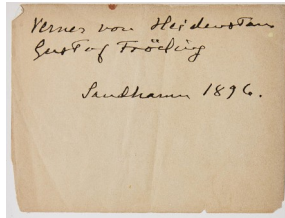 Verner von Heidenstam
Gustaf Fröding
Sandhamn 1896.